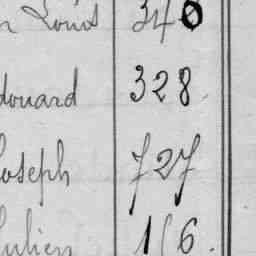 Louis 340
douard 328
oseph 727
ulien 116.